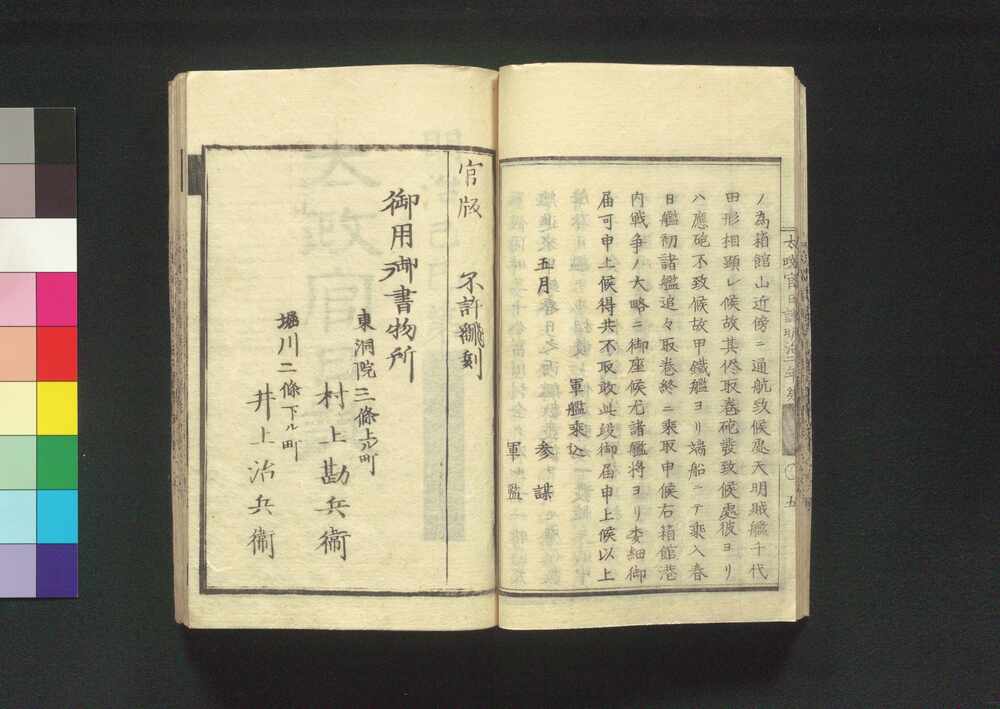 ノ為箱館山近傍ニ通航致候處天明賊艦千代
田形相顕レ候故其侭取巻砲發致候處彼ヨリ
ハ應砲不致候故甲鐵艦ヨリ端船ニテ乗入春
日艦初諸艦追々取巻終ニ乗取申候右箱館港
内戦争ノ大略ニ御座候尤諸艦将ヨリ委細御
届可申上候得共不取敢此段御届申上候以上
五月
軍艦乗込
参謀
軍監
太政官日誌明治二年
五
官版 不許翻刻
御用御書物所
東洞院三條上ル町
村上勘兵衛
堀川二條下ル町
井上治兵衛